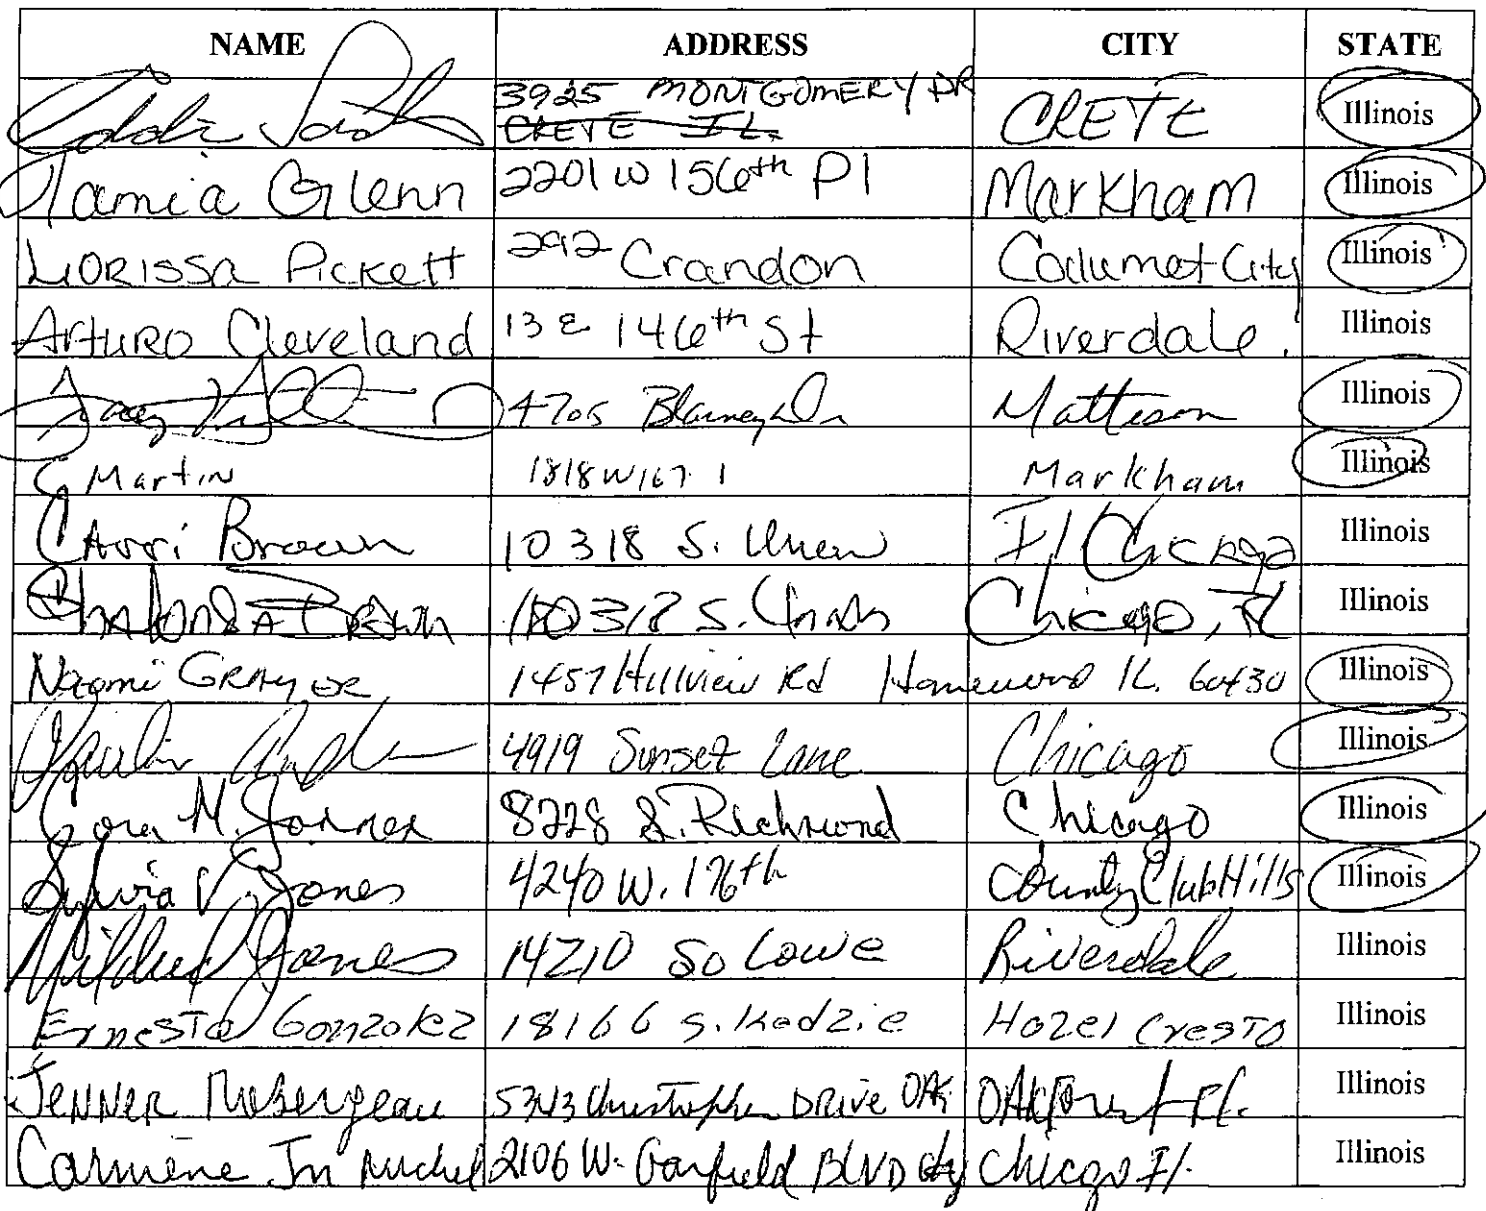 NAME ADDRESS CITY STATE
3925 MONTGOMERY DR CRETE Illinois
CRETE IL.
Tamia Glenn 2201 W 156th Pl Markham Illinois
Lorissa Pickett 292 Crandon Calumet City Illinois
Arturo Cleveland 13 E 146th St Riverdale Illinois
4705 Matteson Illinois
Martin 1818 W 167 Markham Illinois
Brown 10318 S. Union Il Chicago Illinois
Brown 10318 S. Chicago, Il Illinois
Naomi 1457 Hillview Rd Homewood IL. 60430 Illinois
4919 Sunset Lane Chicago Illinois
M. 8228 S. Richmond Chicago Illinois
Sylvia V. Jones 4240 W. 176th County Club Hills Illinois
Mildred Jones 14210 So Lowe Riverdale Illinois
Ernesto Gonzalez 18166 S. Kedzie Hazel Crest Illinois
Jenner 5343 Christopher Drive Oak Oak Forest Il. Illinois
Carmene Jn Michel 2106 W. Garfield BLVD Chicago Il. Illinois